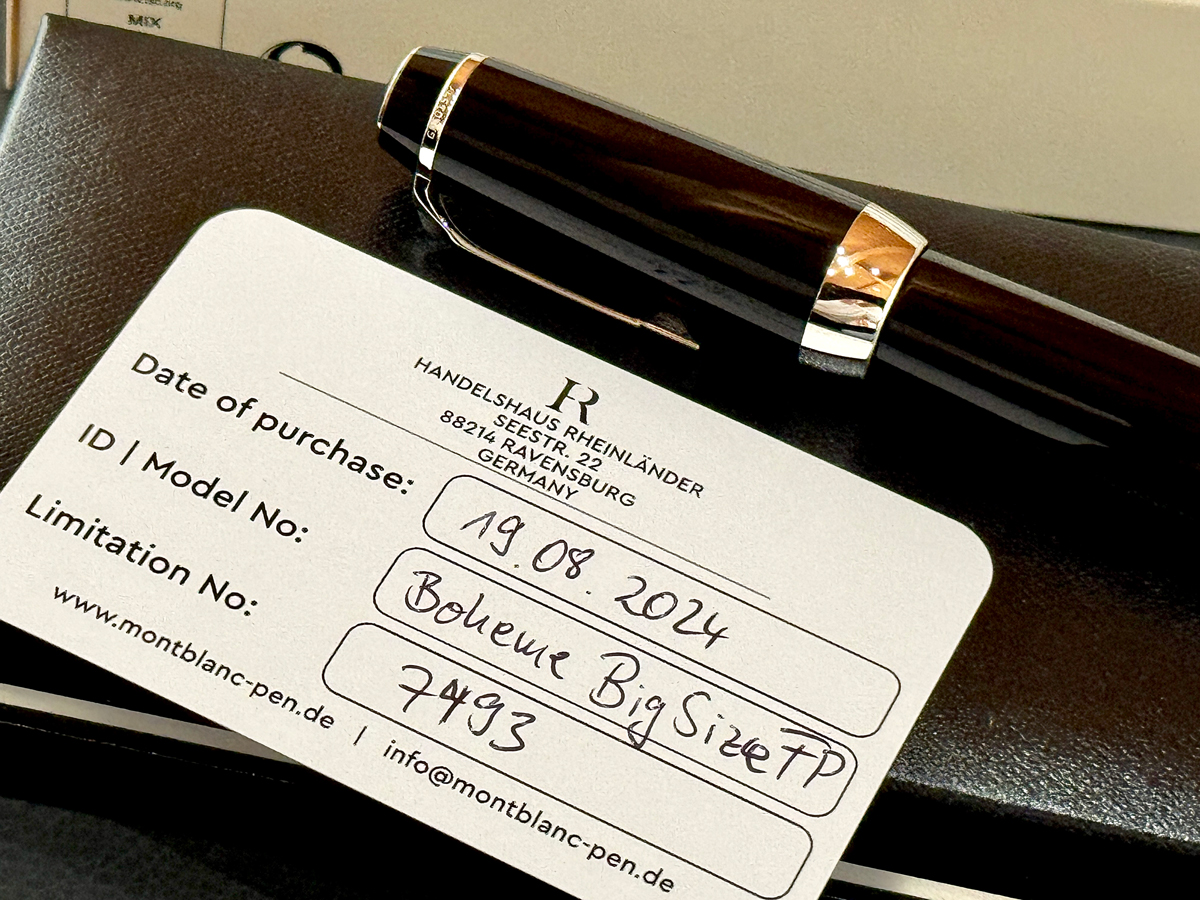 MIX
R
HANDELSHAUS RHEINLÄNDER
SEESTR. 22
88214 RAVENSBURG
GERMANY
Date of purchase: 19.08.2024
ID | Model No: Boheme Big Size FP
Limitation No: 7493
www.montblanc-pen.de | info@montblanc-pen.de